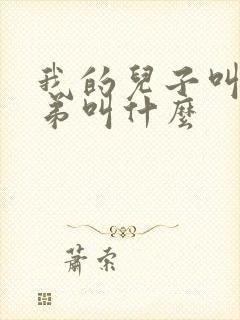 我的兒子叫
弟叫什麼
蕭索